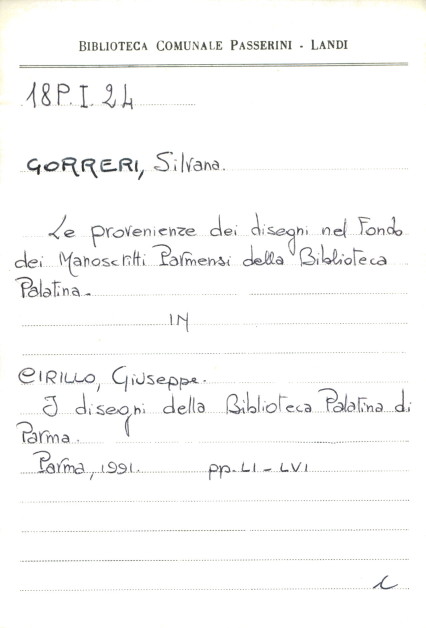 BIBLIOTECA COMUNALE PASSERINI - LANDI
18P.I.24
GORRERI, Silvana.
Le provenienze dei disegni nel Fondo
dei Manoscritti Parmensi della Biblioteca
Palatina.
IN
CIRILLO, Giuseppe.
I disegni della Biblioteca Palatina di
Parma.
Parma, 1991. pp. LI - LVI